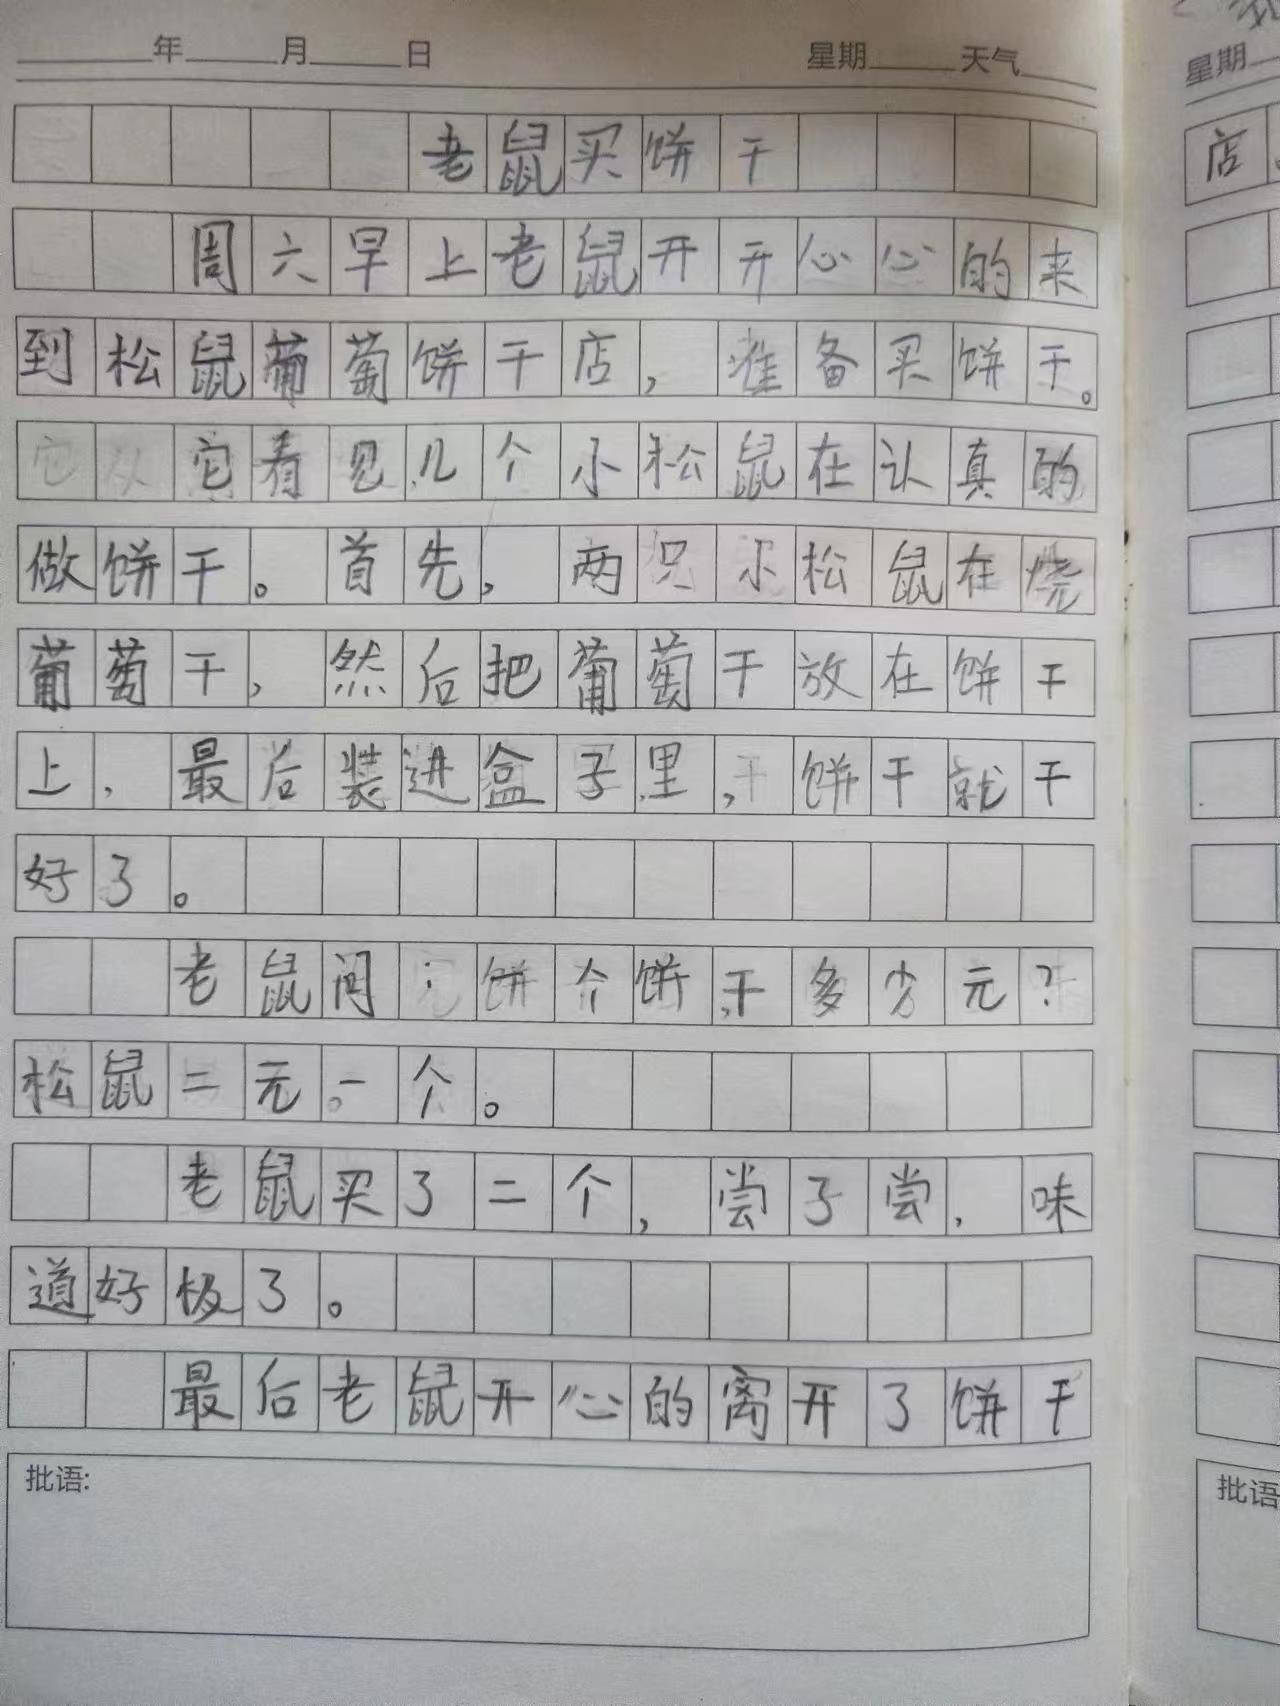 年 月 日 星期 天气
老鼠买饼干
周六早上老鼠开开心心的来
到松鼠葡萄饼干店，准备买饼干。
它看见几个小松鼠在认真的
做饼干。首先，两只小松鼠在烧
葡萄干，然后把葡萄干放在饼干
上，最后装进盒子里，饼干就干
好了。
老鼠问：饼个饼干多少元？
松鼠二元一个。
老鼠买了二个，尝了尝，味
道好极了。
最后老鼠开心的离开了饼干
批语:
星期
店。
批语